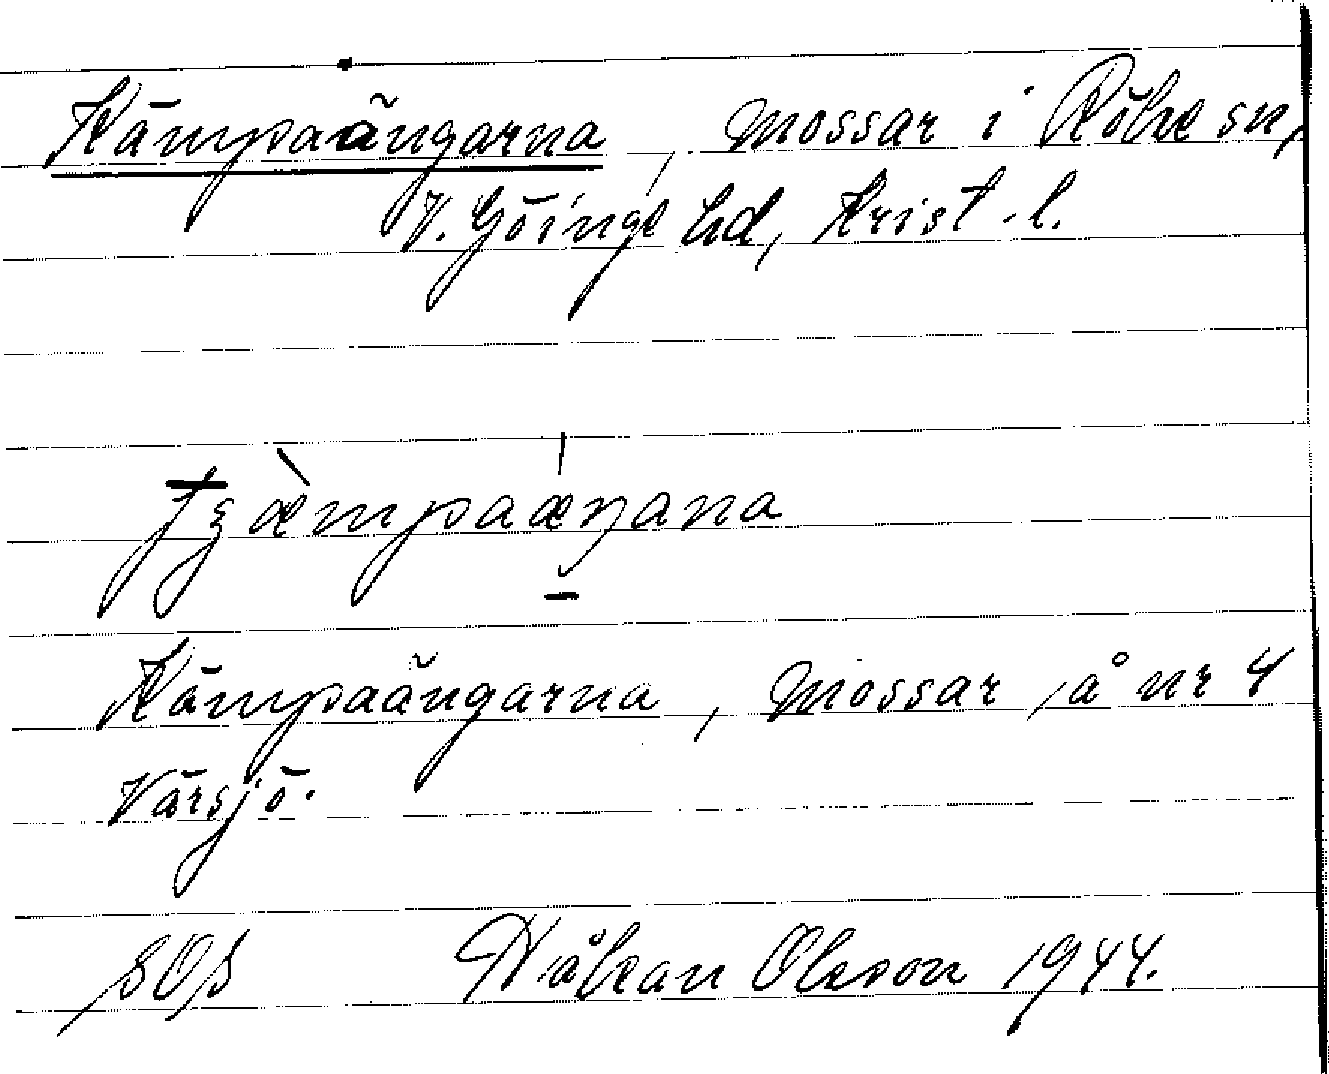 Kämpaängarna, mossar i Röke sn,
V. Göinge hd, Krist. l.
Kämpaängarna, mossar, å nr 4
Värsjö.
Håkan Olsson 1944.